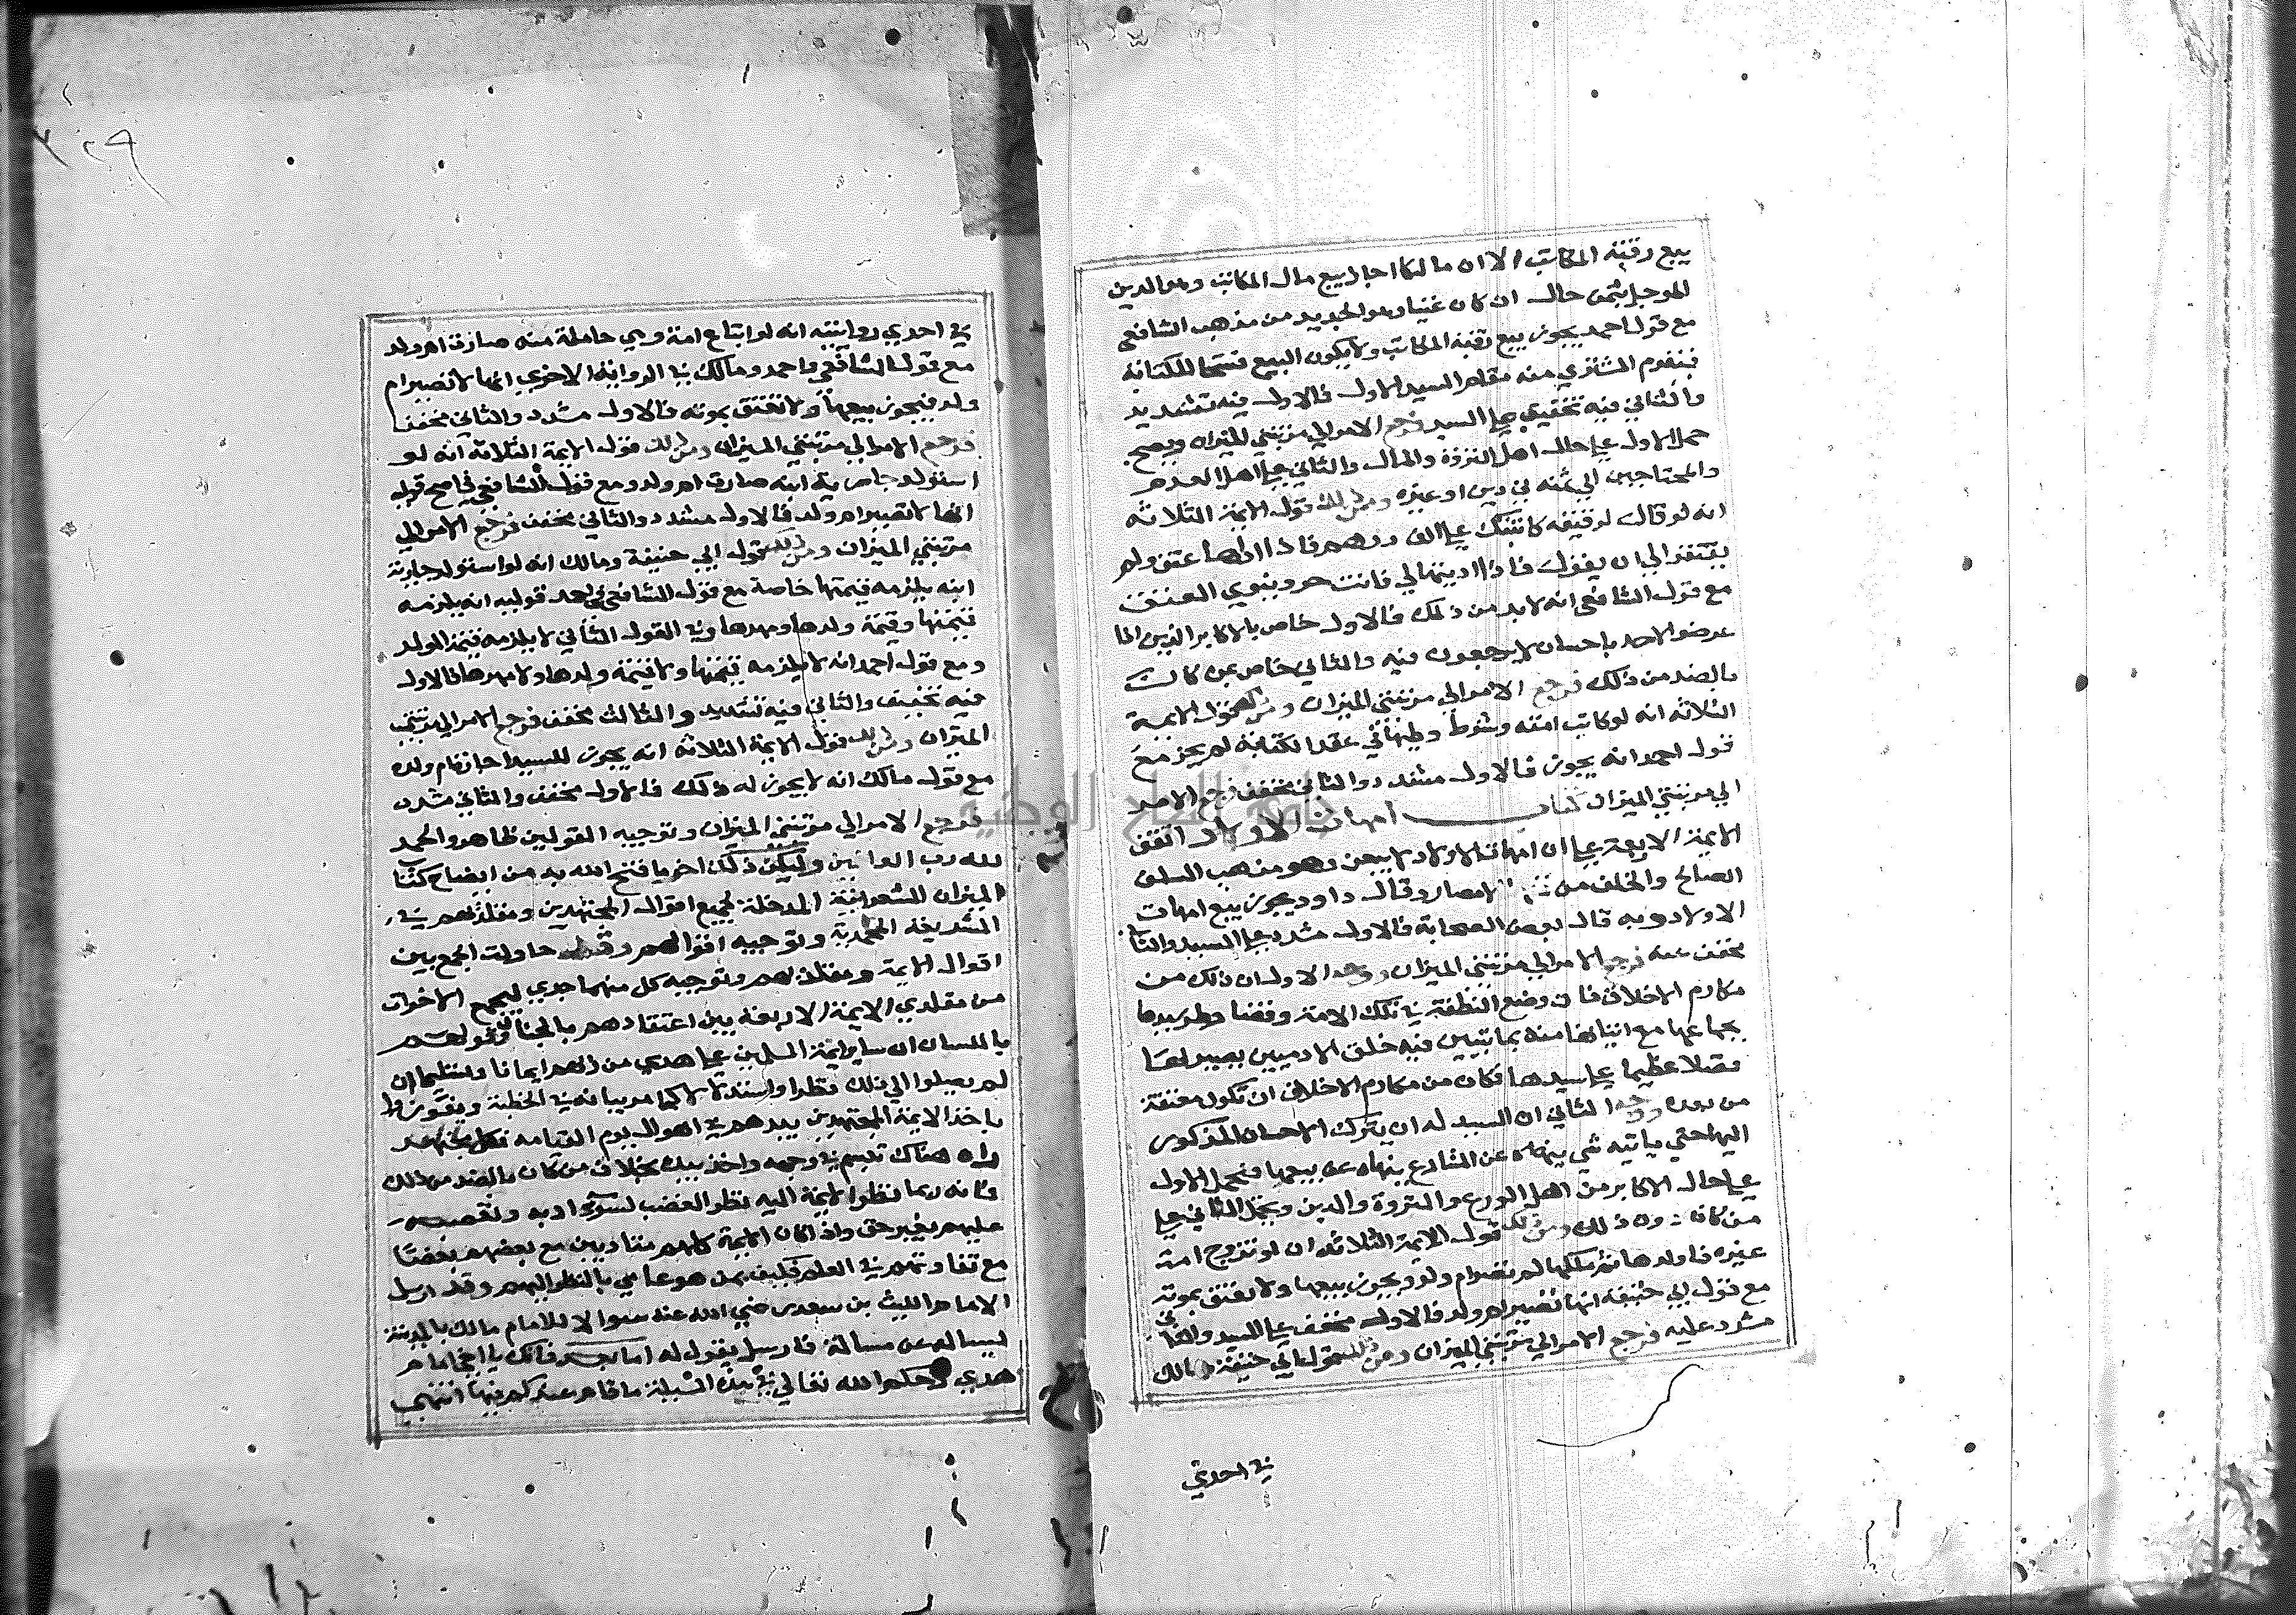 بيع رقبة المكاتب الا ان مالكا اجاز بيع مال المكاتب وهو الدين
الموجل بثمن حال ان كان غنيا وهو الجديد من مذهب الشافعي
مع قول احمد يجوز بيع رقبة المكاتب ولا يكون البيع فسخا للكتابة
فيقوم المشتري منه مقام السيد الاول فالاول فيه تشديد
والثاني فيه تخفيف على السيد فرجع الامر الى مرتبتي الميزان ويصح
حمل الاول على حال اهل الثروة والمال والثاني على اهل العدم
والمحتاجين الى ثمنه في دين او غيره ومن ذلك قول الايمة الثلاثة
انه لو قال لرقيقه كاتبتك على الف درهم فاذا اداها عتق ولم
يفتقر الى ان يقول فاذا اديتها لي فانت حر وينوي العتق
مع قول الشافعي انه لا بد من ذلك فالاول خاص بالاكابر الذين اذا
عرضوا لاحد باحسان لا يرجعون فيه والثاني خاص بمن كان
بالضد من ذلك فرجع الامر الى مرتبتي الميزان ومن ذلك قول الايمة
الثلاثة انه لو كاتب امته وشرط وطيها في عقد الكتابة لم يجز مع
قول احمد انه يجوز فالاول مشدد والثاني مخفف فرجع الامر
الى مرتبتي الميزان كتاب امهات الاولاد اتفق
الايمة الاربعة على ان امهات الاولاد لا يبعن وهو مذهب السلف
الصالح والخلف من الامصار وقال داود يجوز بيع امهات
الاولاد وبه قال بعض الصحابة فالاول مشدد على السيد والثاني
مخفف عنه فرجع الامر الى مرتبتي الميزان ووجه الاول ان ذلك من
مكارم الاخلاق فان وضع النطفة في تلك الامة وقضا وطر سيدها
بجماعها مع اتيانها منه بما تبين فيه خلق الادميين يصير لها
فضلا عظيما على سيدها فكان من مكارم الاخلاق ان تكون معتقة
من بعده ووجه الثاني ان السيد له ان يترك الاحسان المذكور
اليها حتى ياتيه شي عن الشارع ينهاه عن بيعها فيحمل الاول
على حال الاكابر من اهل الورع والثروة والدين ويحمل الثاني على
من كان دون ذلك ومن ذلك قول الايمة الثلاثة ان لو تزوج امة
غيره فاولدها ثم ملكها لم تصر ام ولد ويجوز بيعها ولا تعتق بموته
مع قول ابي حنيفة انها تصير ام ولد فالاول مخفف على السيد والثاني
مشدد عليه فرجع الامر الى مرتبتي الميزان ومن ذلك قول ابي حنيفة ومالك
في احدي
في احدي روايتيه انه لو ابتاع امة وهي حاملة منه صارت ام ولد
مع قول الشافعي واحمد ومالك في الرواية الاخري انها لا تصير ام
ولد فيجوز بيعها ولا تعتق بموته فالاول مشدد والثاني مخفف
فرجع الامر الى مرتبتي الميزان ومن ذلك قول الايمة الثلاثة انه لو
استولد جارية ابنه صارت ام ولد ومع قول الشافعي في اصح قوليه
انها لا تصير ام ولد فالاول مشدد والثاني مخفف فرجع الامر الى
مرتبتي الميزان ومن ذلك قول ابي حنيفة ومالك انه لو استولد جارية
ابنه يلزمه قيمتها خاصة مع قول الشافعي في احد قوليه انه يلزمه
قيمتها وقيمة ولدها ومهرها وفي القول الثاني لا يلزمه قيمة الولد
ومع قول احمد انه لا يلزمه قيمتها ولا قيمة ولدها ولا مهرها فالاول
فيه تخفيف والثاني فيه تشديد والثالث مخفف فرجع الامر الى مرتبتي
الميزان ومن ذلك قول الايمة الثلاثة انه يجوز للسيد اجارة ام ولده
مع قول مالك انه لا يجوز له ذلك فالاول مخفف والثاني مشدد
فرجع الامر الى مرتبتي الميزان وتوجيه القولين ظاهر والحمد
لله رب العالمين وليكن ذلك اخر ما فتح الله به من ايضاح كتاب
الميزان الشعرانية المدخلة لجميع اقوال المجتهدين ومقلديهم في
الشريعة المحمدية وتوجيه اقوالهم وقد حاولت الجمع بين
اقوال الايمة ومقلديهم وتوجيه كل منهما جهدي ليجمع الاخوان
من مقلدي الايمة الاربعة بين اعتقادهم بالجنان وقولهم
باللسان ان ساير ايمة المسلمين على هدي من ربهم ايمانا وتسليما ان
لم يصلوا الى ذلك نظرا واستدلالا كما مر بيانه في الخطبة
ياخذ الايمة المجتهدين بيدهم في اهوال يوم القيامه فكل مجتهد
راه هناك تبسم في وجهه واخذ بيده بخلاف من كان بالضد من ذلك
فانه ربما نظر الايمة اليه نظر الغضب لسوء ادبه وتعصبه
عليهم بغير حق واذا كان الايمة كلهم متادبين مع بعضهم بعضا
مع تفاوتهم في العلم فكيف بمن هو عامي بالنظر اليهم وقد ارسل
الامام الليث بن سعد رضي الله عنه سوالا للامام مالك بالمدينة
ليساله عن مسالة فارسل يقول له اما بعد فانك يا اخي امام
هدي وحكم الله تعالى في هذه المسئلة ما قام عندكم فيها انتهى